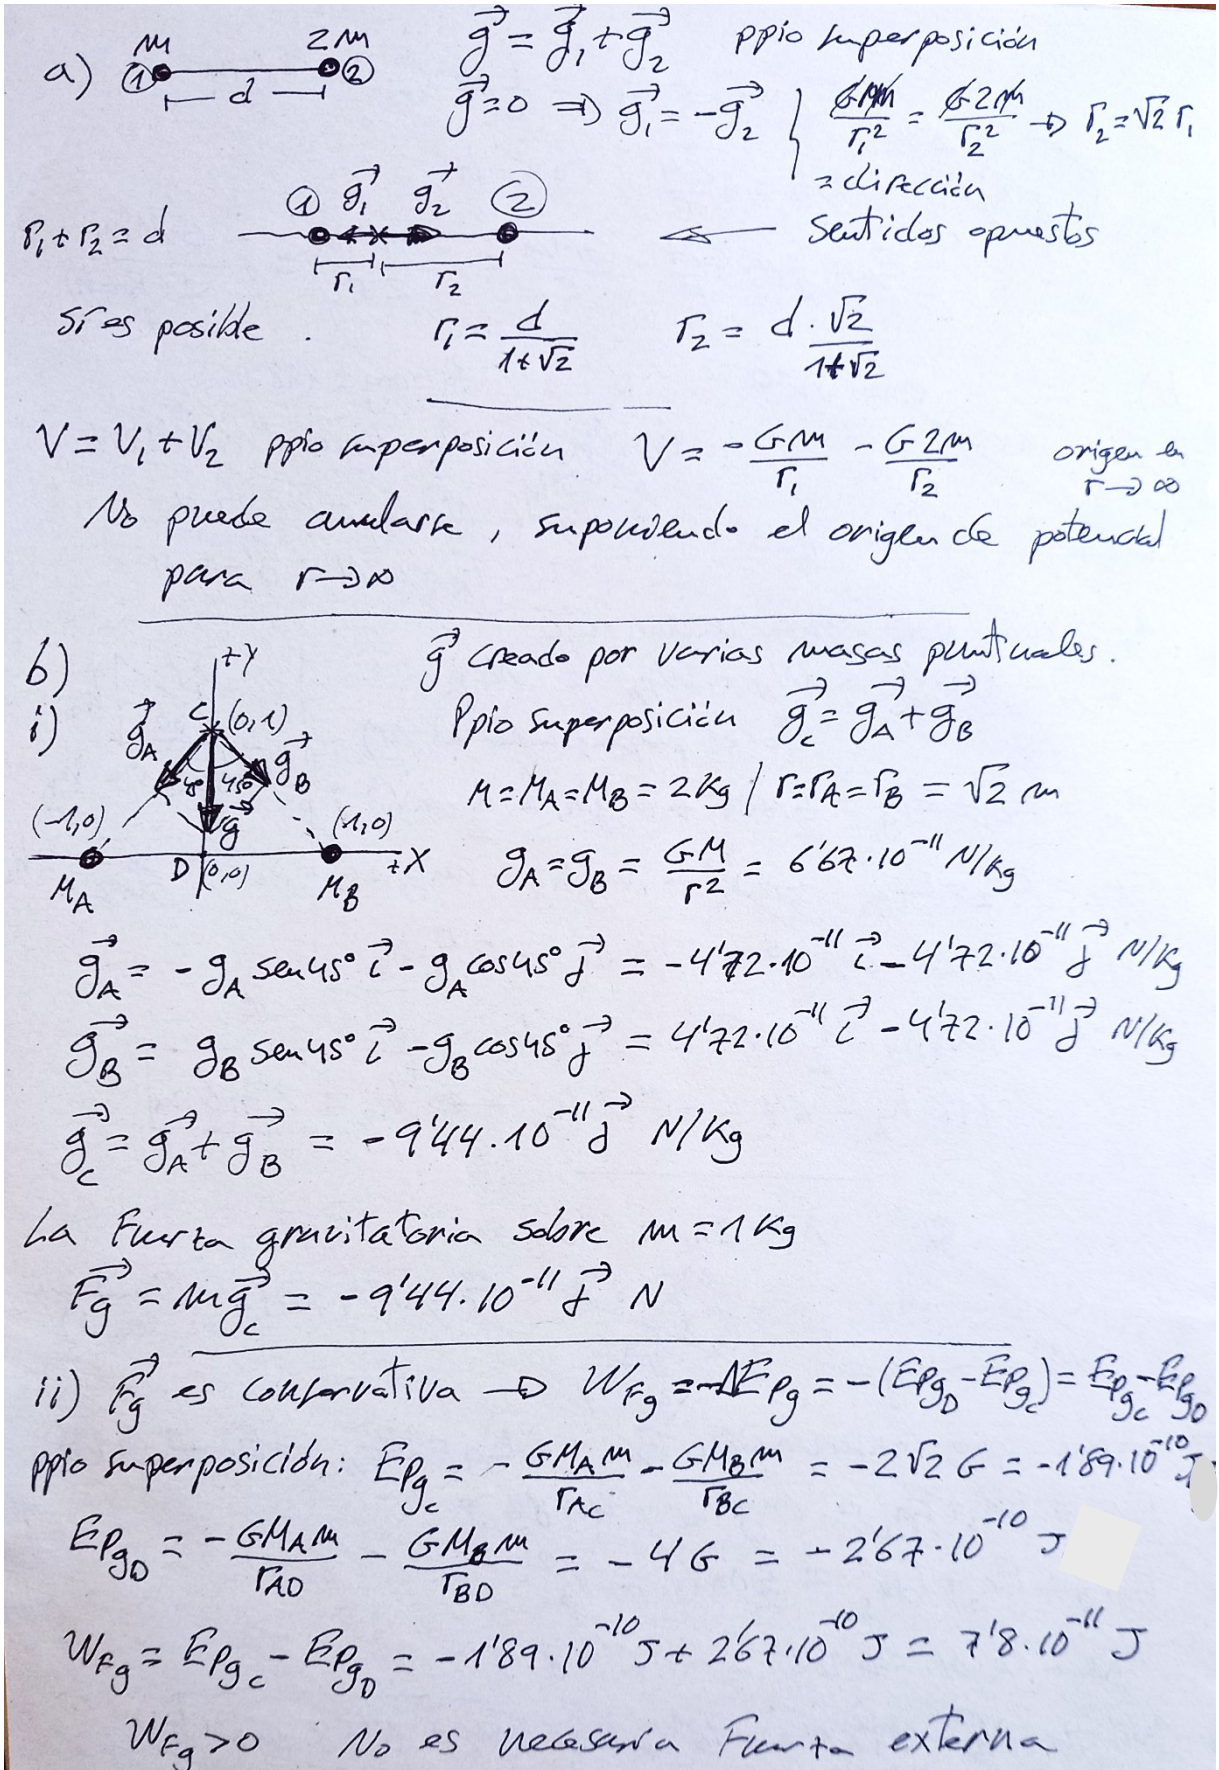 a) m 2m g⃗ = g⃗₁ + g⃗₂ ppio superposición
① ②
d
g⃗=0 ⇒ g⃗₁ = -g⃗₂ } Gm/r₁² = G2m/r₂² → r₂=√2 r₁
= dirección
① g⃗₁ g⃗₂ ②
r₁+r₂ = d ← Sentidos opuestos
r₁ r₂
Sí es posible. r₁ = d/(1+√2) r₂ = d·√2/(1+√2)
V = V₁ + V₂ ppio superposición V = -Gm/r₁ - G2m/r₂ origen en
r→∞
No puede anularse, suponiendo el origen de potencial
para r→∞
b) +Y g⃗ creado por varias masas puntuales.
i) C (0,1) Ppio superposición g⃗_C = g⃗_A + g⃗_B
g⃗_A 45° 45° g⃗_B
M=M_A=M_B = 2Kg / r=r_A=r_B = √2 m
(-1,0) g⃗ (1,0)
D (0,0) +X
M_A M_B
g_A = g_B = GM/r² = 6'67·10⁻¹¹ N/Kg
g⃗_A = - g_A sen45° i⃗ - g_A cos45° j⃗ = -4'72·10⁻¹¹ i⃗ - 4'72·10⁻¹¹ j⃗ N/Kg
g⃗_B = g_B sen45° i⃗ - g_B cos45° j⃗ = 4'72·10⁻¹¹ i⃗ - 4'72·10⁻¹¹ j⃗ N/Kg
g⃗_C = g⃗_A + g⃗_B = -9'44·10⁻¹¹ j⃗ N/Kg
La Fuerza gravitatoria sobre m=1Kg
F⃗g = m g⃗_C = -9'44·10⁻¹¹ j⃗ N
ii) F⃗g es conservativa → W_Fg = -ΔEpg = -(Epg_D - Epg_C) = Epg_C - Epg_D
ppio superposición: Epg_C = - GM_A m/r_AC - GM_B m/r_BC = -2√2 G = -1'89·10⁻¹⁰ J
Epg_D = - GM_A m/r_AD - GM_B m/r_BD = -4G = -2'67·10⁻¹⁰ J
W_Fg = Epg_C - Epg_D = -1'89·10⁻¹⁰ J + 2'67·10⁻¹⁰ J = 7'8·10⁻¹¹ J
W_Fg>0 No es necesaria Fuerza externa